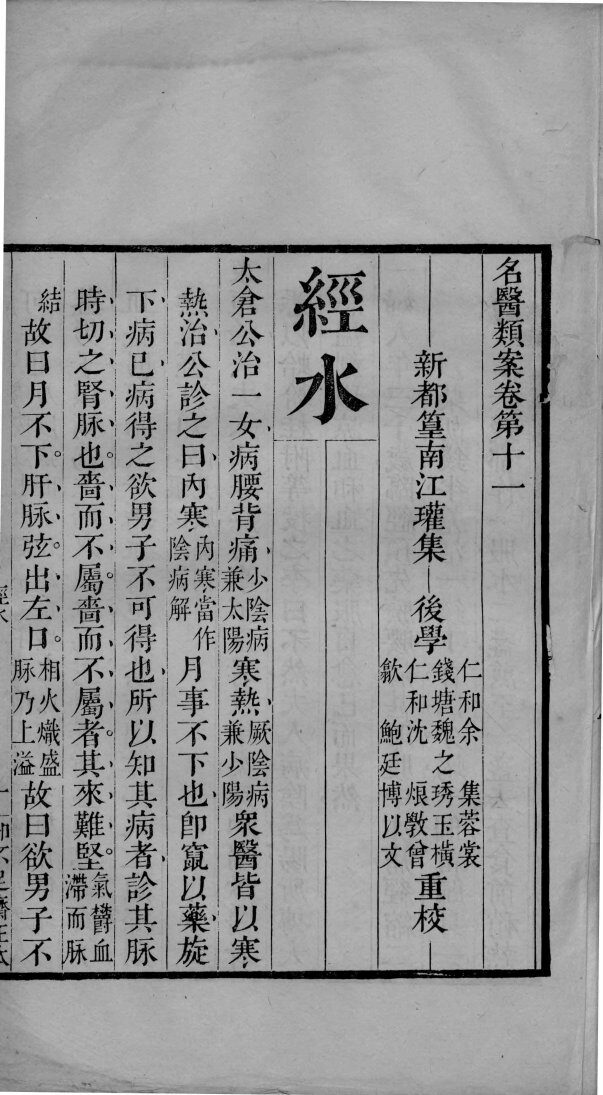 名醫類案卷第十一
新都篁南江瓘集 後學
仁和余 集蓉裳
錢塘魏之琇玉橫
仁和沈 烺斅曾
歙 鮑廷博以文
重校
經水
太倉公治一女病腰背痛少陰病兼太陽寒熱厥陰病兼少陽衆醫皆以寒
熱治公診之曰內寒內寒當作陰病解月事不下也卽竄以藥旋
下病已病得之欲男子不可得也所以知其病者診其脉
時切之腎脉也嗇而不屬嗇而不屬者其來難堅氣鬱血滯而脉
結故曰月不下肝脉弦出左口相火熾盛脉乃上溢故曰欲男子不
經水
一